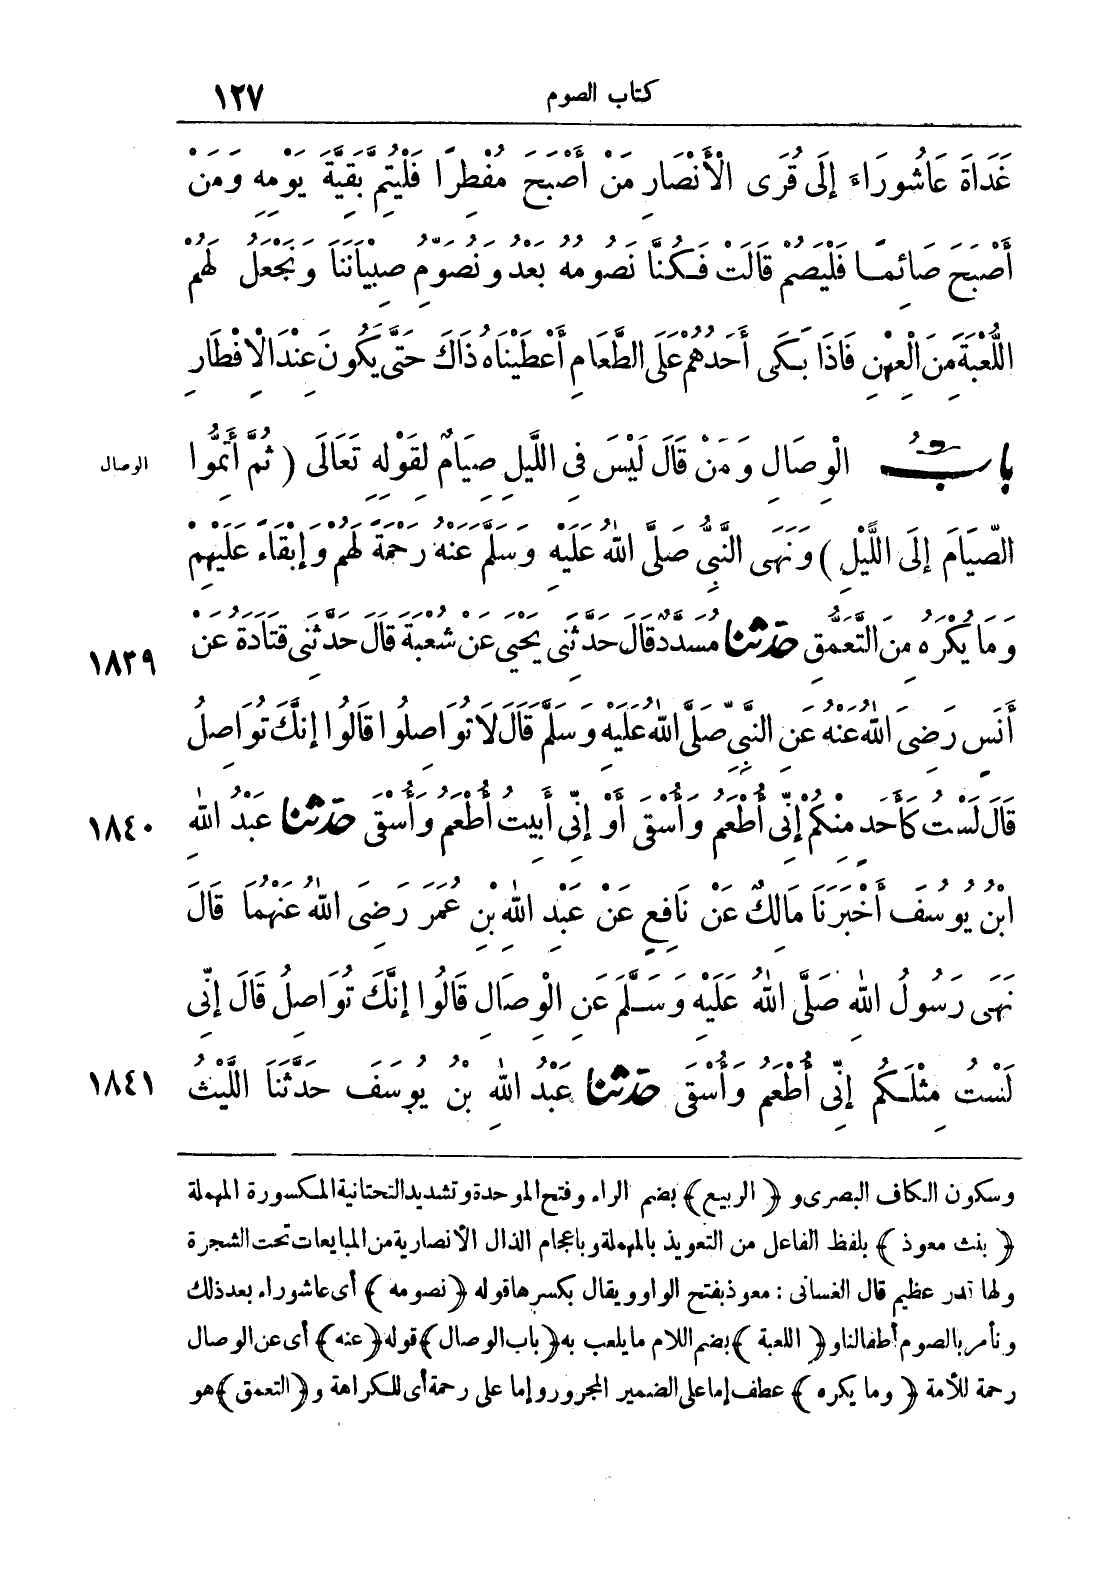 كتاب الصوم ١٢٧
غَدَاةَ عَاشُورَاءَ إِلَى قُرَى الْأَنْصَارِ مَنْ أَصْبَحَ مُفْطِرًا فَلْيُتِمَّ بَقِيَّةَ يَوْمِهِ وَمَنْ
أَصْبَحَ صَائِمًا فَلْيَصُمْ قَالَتْ فَكُنَّا نَصُومُهُ بَعْدُ وَنُصَوِّمُ صِبْيَانَنَا وَنَجْعَلُ لَهُمُ
اللُّعْبَةَ مِنَ الْعِهْنِ فَاذَا بَكَى أَحَدُهُمْ عَلَى الطَّعَامِ أَعْطَيْنَاهُ ذَاكَ حَتَّى يَكُونَ عِنْدَ الْافْطَارِ
بابُ الْوِصَالِ وَمَنْ قَالَ لَيْسَ فِى اللَّيْلِ صِيَامٌ لِقَوْلِهِ تَعَالَى ( ثُمَّ أَتِمُّوا
الوصال
الصِّيَامَ إِلَى اللَّيْلِ ) وَنَهَى النَّبِىُّ صَلَّى اللهُ عَلَيْهِ وَسَلَّمَ عَنْهُ رَحْمَةً لَهُمْ وَإِبْقَاءً عَلَيْهِمْ
وَمَا يُكْرَهُ مِنَ التَّعَمُّقِ حدثنا مُسَدَّدٌ قَالَ حَدَّثَنِى يَحْيَى عَنْ شُعْبَةَ قَالَ حَدَّثَنِى قَتَادَةُ عَنْ
١٨٣٩
أَنَسٍ رَضِىَ اللهُ عَنْهُ عَنِ النَّبِىِّ صَلَّى اللهُ عَلَيْهِ وَسَلَّمَ قَالَ لَا تُوَاصِلُوا قَالُوا إِنَّكَ تُوَاصِلُ
قَالَ لَسْتُ كَأَحَدٍ مِنْكُمْ إِنِّى أُطْعَمُ وَأُسْقَى أَوْ إِنِّى أَبِيتُ أُطْعَمُ وَأُسْقَى حدثنا عَبْدُ اللهِ
١٨٤٠
ابْنُ يُوسُفَ أَخْبَرَنَا مَالِكٌ عَنْ نَافِعٍ عَنْ عَبْدِ اللهِ بْنِ عُمَرَ رَضِىَ اللهُ عَنْهُمَا قَالَ
نَهَى رَسُولُ اللهِ صَلَّى اللهُ عَلَيْهِ وَسَلَّمَ عَنِ الْوِصَالِ قَالُوا إِنَّكَ تُوَاصِلُ قَالَ إِنِّى
لَسْتُ مِثْلَكُمْ إِنِّى أُطْعَمُ وَأُسْقَى حدثنا عَبْدُ اللهِ بْنُ يُوسُفَ حَدَّثَنَا اللَّيْثُ
١٨٤١
وسكون الكاف البصرى و ﴿ الربيع ﴾ بضم الراء وفتح الموحدة وتشديد التحتانية المكسورة المهملة
﴿ بنت معوذ ﴾ بلفظ الفاعل من التعويذ بالمهملة وباعجام الذال الأنصارية من المبايعات تحت الشجرة
ولها قدر عظيم قال الغسانى : معوذ بفتح الواو ويقال بكسرها قوله ﴿ نصومه ﴾ أى عاشوراء بعد ذلك
ونأمر بالصوم أطفالنا و ﴿ اللعبة ﴾ بضم اللام ما يلعب به ﴿ باب الوصال ﴾ قوله ﴿ عنه ﴾ أى عن الوصال
رحمة للأمة ﴿ وما يكره ﴾ عطف إما على الضمير المجرور وإما على رحمة أى للكراهة و ﴿ التعمق ﴾ هو